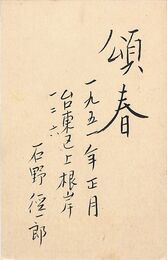 頌春
一九五一年正月
台東区上根岸
一二六
石野径一郎